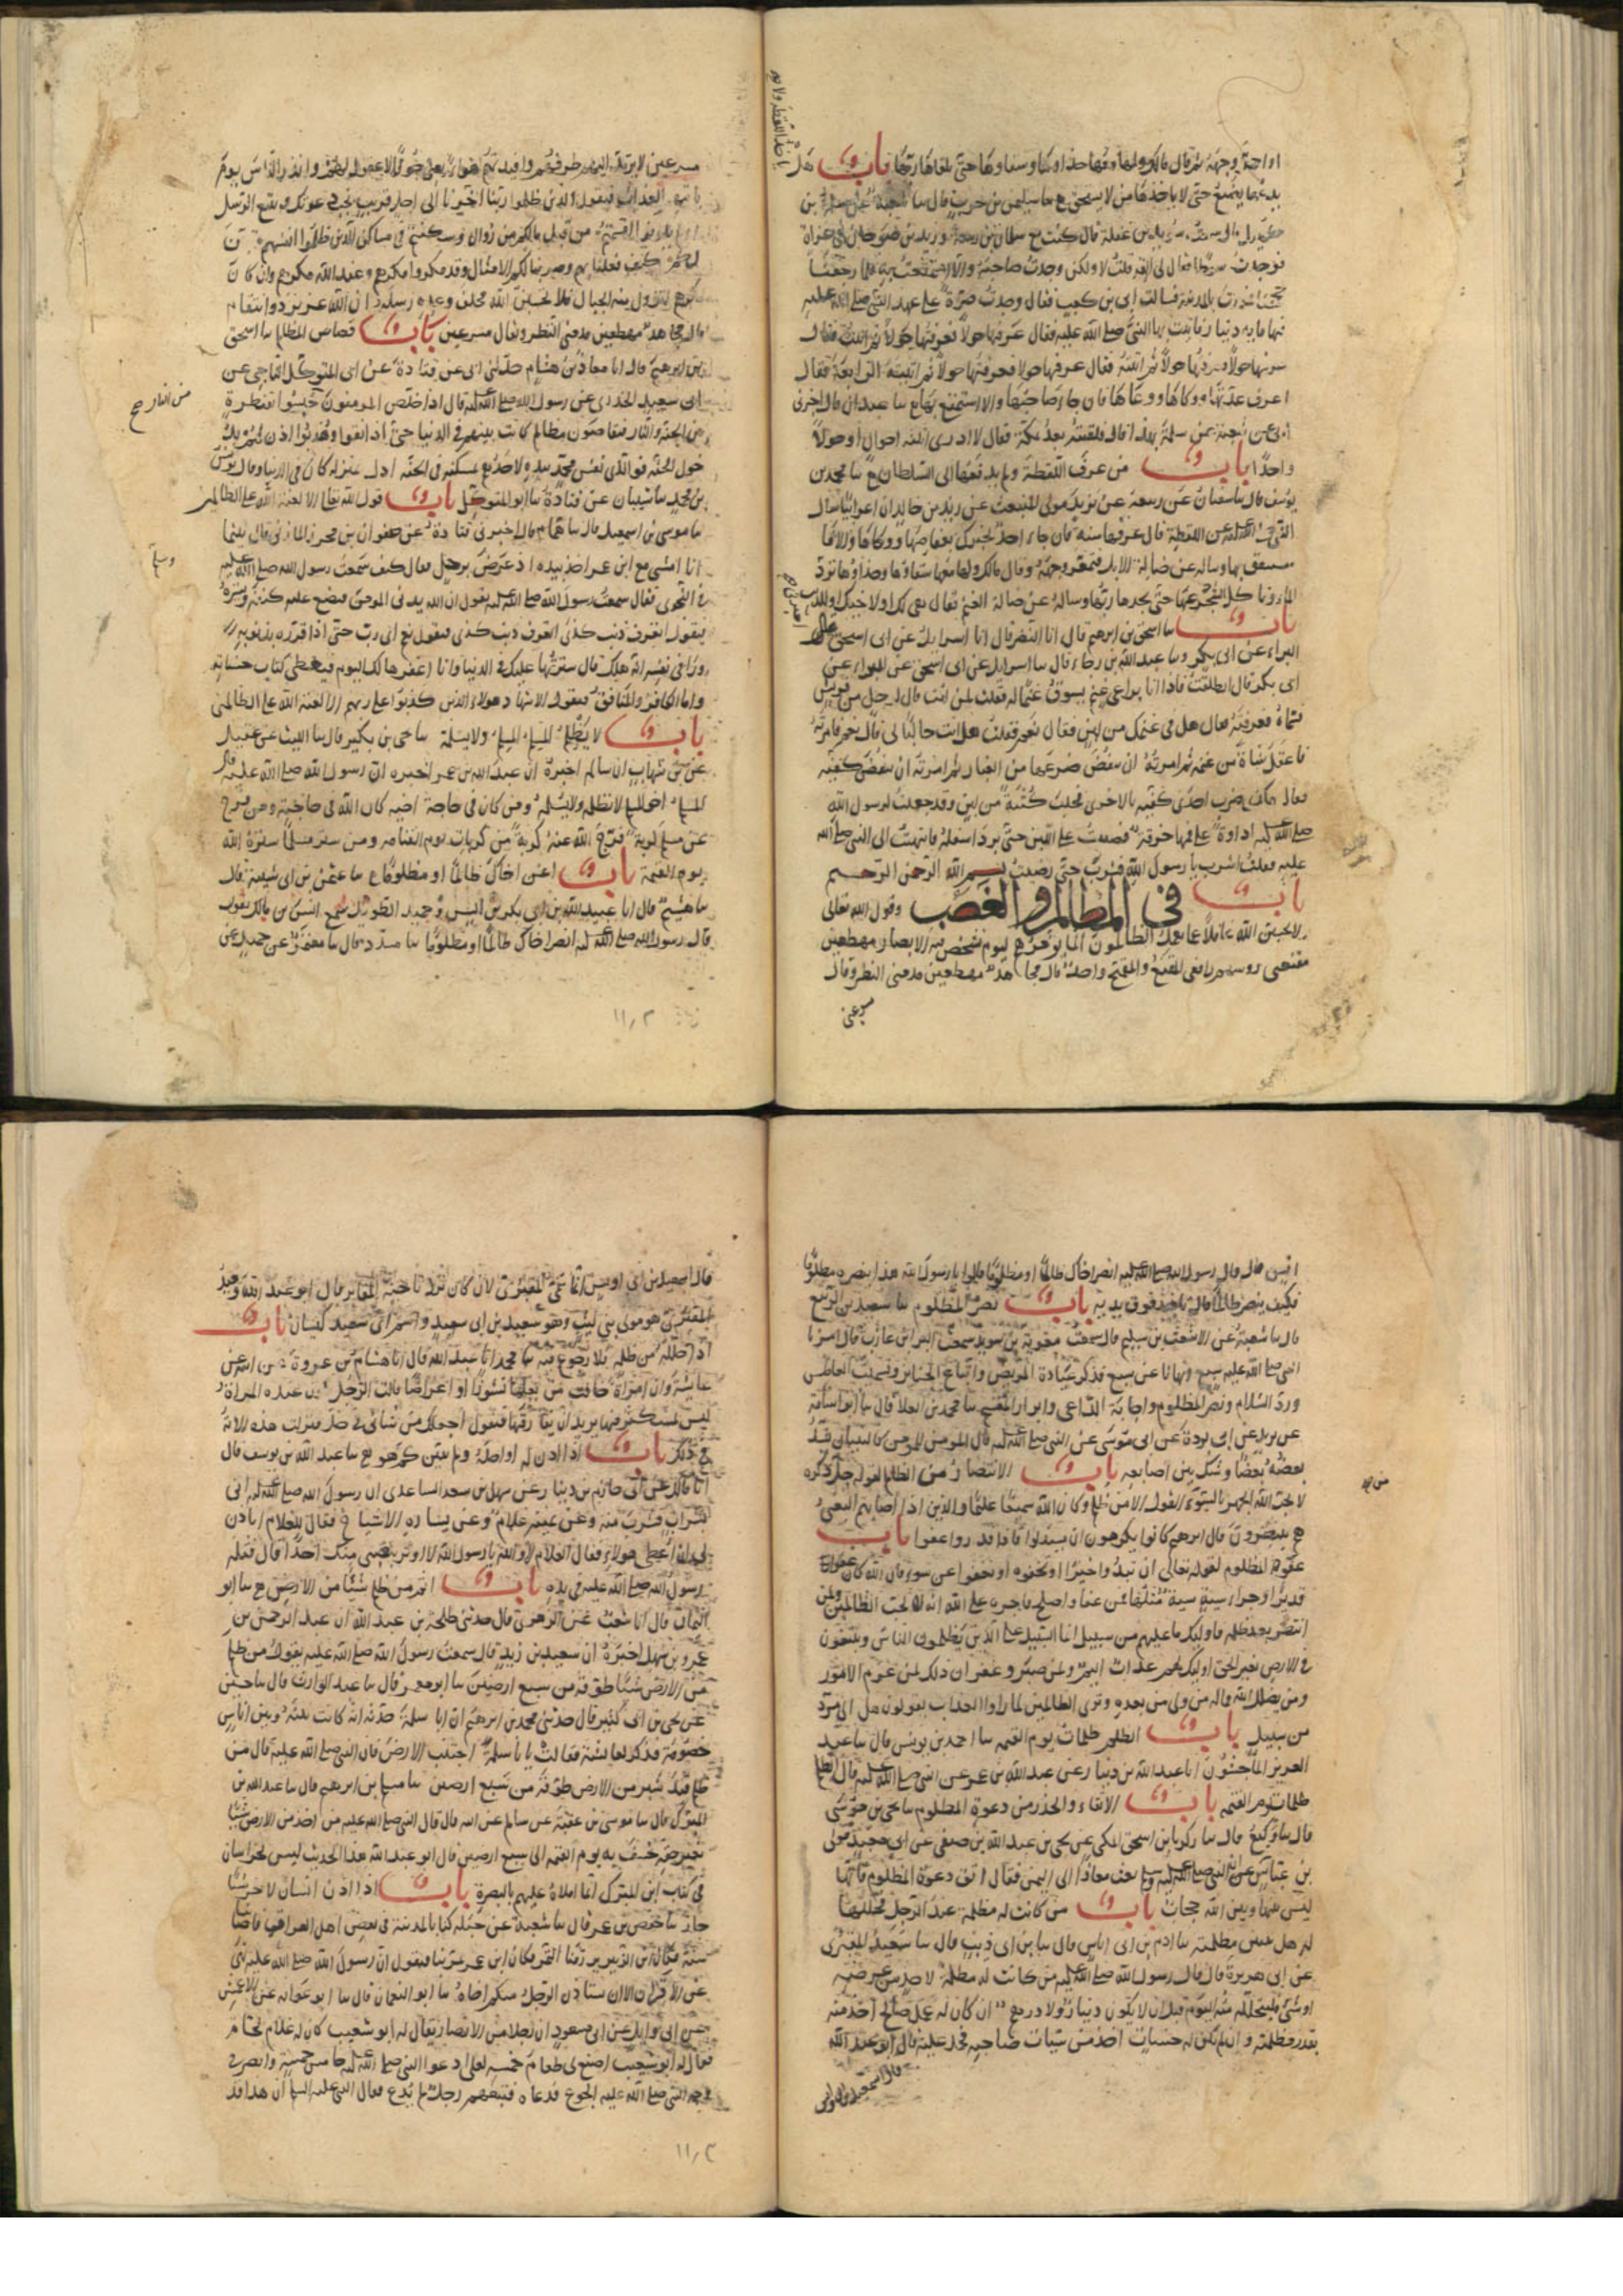 ثم قال مالك ولها دعها معها حذاؤها وسقاؤها حتى يلقاها ربها باب هل
يدعها تضيع حتى لا ياخذها من لا يستحق سا سليمن بن حرب قال سا شعبة عن سلمة بن
سويد بن غفلة قال كنت مع سلمان بن ربيعة وزيد بن صوحان في غزاة
فوجدت سوطا فقال لي القه قلت لا ولكن وجدت صاحبه والا استمتعت به فلما رجعنا
بالمدينة فسالت ابي بن كعب فقال وجدت صرة على عهد النبي صلى الله عليه
فيها ماية دينار فاتيت بها النبي صلى الله عليه فقال عرفها حولا فعرفتها حولا ثم اتيت فقال
عرفها حولا فعرفتها حولا ثم اتيته فقال عرفها حولا فعرفتها حولا ثم اتيته الرابعة فقال
اعرف عدتها ووكاها ووعاها فان جا صاحبها والا استمتع بها سا عبدان قال اخبرني
ابي عن شعبة عن سلمة بهذا قال فلقيته بعد بمكة فقال لا ادري اثلثة احوال او حولا
واحدا باب من عرف اللقطة ولم يدفعها الى السلطان سا محمد بن
يوسف قال سا سفيان عن ربيعة عن يزيد مولى المنبعث عن زيد بن خالد ان اعرابيا سال
النبي صلى الله عليه عن اللقطة قال عرفها سنة فان جاء احد يخبرك بعفاصها ووكاها والا
فاستنفق بها وساله عن ضالة الابل فتمعر وجهه وقال مالك ولها معها سقاؤها وحذاؤها ترد
الماء وتاكل الشجر دعها حتى يجدها ربها وساله عن ضالة الغنم فقال هي لك او لاخيك او للذيب
باب سا اسحق بن ابرهيم قال انا النضر قال انا اسرايل عن ابي اسحق عن
البراء عن ابي بكر وسا عبد الله بن رجاء قال سا اسرايل عن ابي اسحق عن البراء عن
ابي بكر قال انطلقت فاذا انا براعي غنم يسوق غنما له فقلت لمن انت قال لرجل من قريش
فسماه فعرفته فقال هل في غنمك من لبن فقال نعم فقلت هل انت حالب لي قال نعم فامرته
فاعتقل شاة من غنمه ثم امرته ان ينفض ضرعها من الغبار ثم امرته ان ينفض كفيه
فقال هكذا ضرب احدى كفيه بالاخرى فحلب كثبة من لبن وقد جعلت لرسول الله
صلى الله عليه اداوة على فمها خرقة فصببت على اللبن حتى برد اسفله فانتهيت الى النبي صلى الله
عليه فقلت اشرب يا رسول الله فشرب حتى رضيت بسم الله الرحمن الرحيم
باب في المظالم والغصب وقول الله تعالى
ولا تحسبن الله غافلا عما يعمل الظالمون انما يوخرهم ليوم تشخص فيه الابصار مهطعين
مقنعي روسهم رافعي المقنع والمقمح واحد قال مجاهد مهطعين مدمني النظر وقال
مسرعين
مسرعين لا يرتد اليهم طرفهم وافيدتهم هواء يعني جوفا لا عقول لهم وانذر الناس يوم
ياتيهم العذاب فيقول الذين ظلموا ربنا اخرنا الى اجل قريب نجب دعوتك ونتبع الرسل
اولم تكونوا اقسمتم من قبل مالكم من زوال وسكنتم في مساكن الذين ظلموا انفسهم وتبين
لكم كيف فعلنا بهم وضربنا لكم الامثال وقد مكروا مكرهم وعند الله مكرهم وان كان
مكرهم لتزول منه الجبال فلا تحسبن الله مخلف وعده رسله ان الله عزيز ذو انتقام
قال مجاهد مهطعين مدمني النظر ويقال مسرعين باب قصاص المظالم سا اسحق
بن ابرهيم قال انا معاذ بن هشام حدثني ابي عن قتادة عن ابي المتوكل الناجي عن
ابي سعيد الخدري عن رسول الله صلى الله عليه قال اذا خلص المومنون حبسوا بقنطرة
بين الجنة والنار فيتقاصون مظالم كانت بينهم في الدنيا حتى اذا نقوا وهذبوا اذن لهم
دخول الجنة فوالذي نفس محمد بيده لاحدهم بمسكنه في الجنة ادل بمنزله كان في الدنيا وقال يونس
بن محمد سا شيبان عن قتادة سا ابو المتوكل باب قول الله تعالى الا لعنة الله على الظالمين
سا موسى بن اسمعيل قال سا همام قال اخبرني قتادة عن صفوان بن محرز المازني قال بينما
انا امشي مع ابن عمر اخذ بيده اذ عرض رجل فقال كيف سمعت رسول الله صلى الله عليه
في النجوى فقال سمعت رسول الله صلى الله عليه يقول ان الله يدني المومن فيضع عليه كنفه ويستره
فيقول اتعرف ذنب كذا اتعرف ذنب كذى فيقول نعم اي رب حتى اذا قرره بذنوبه
وراى في نفسه انه هلك قال سترتها عليك في الدنيا وانا اغفرها لك اليوم فيعطى كتاب حسناته
واما الكافر والمنافق فيقول الاشهاد هولاء الذين كذبوا على ربهم الا لعنة الله على الظالمين
باب لا يظلم المسلم المسلم ولا يسلمه سا يحيى بن بكير قال سا الليث عن عقيل
عن ابن شهاب ان سالم اخبره ان عبد الله بن عمر اخبره ان رسول الله صلى الله عليه قال
المسلم اخو المسلم لا يظلمه ولا يسلمه ومن كان في حاجة اخيه كان الله في حاجته ومن فرج
عن مسلم كربة فرج الله عنه كربة من كربات يوم القيامة ومن ستر مسلما ستره الله
يوم القيمة باب اعن اخاك ظالما او مظلوما سا عثمن بن ابي شيبة قال
سا هشيم قال انا عبيد الله بن ابي بكر بن انس وحميد الطويل سمع انس بن مالك يقول
قال رسول الله صلى الله عليه انصر اخاك ظالما او مظلوما سا مسدد قال سا معتمر عن حميد عن
انس قال قال رسول الله صلى الله عليه انصر اخاك ظالما او مظلوما قالوا يا رسول الله هذا ننصره مظلوما
فكيف ننصره ظالما قال تاخذ فوق يديه باب نصر المظلوم سا سعيد بن الربيع
قال سا شعبة عن الاشعث بن سليم قال سمعت معوية بن سويد سمعت البراء بن عازب قال امرنا
النبي صلى الله عليه بسبع ونهانا عن سبع فذكر عيادة المريض واتباع الجنايز وتشميت العاطس
ورد السلام ونصر المظلوم واجابة الداعي وابرار المقسم سا محمد بن العلا قال سا ابو اسامة
عن بريد عن ابي بردة عن ابي موسى عن النبي صلى الله عليه قال المومن للمومن كالبنيان يشد
بعضه بعضا وشبك بين اصابعه باب الانتصار من الظالم لقوله جل ذكره
لا يحب الله الجهر بالسوء من القول الا من ظلم وكان الله سميعا عليما والذين اذا اصابهم البغي
هم ينتصرون قال ابرهيم كانوا يكرهون ان يستذلوا فاذا قدروا عفوا باب
عفو المظلوم لقوله تعالى ان تبدوا خيرا او تخفوه او تعفوا عن سوء فان الله كان عفوا
قديرا وجزاء سيئة سيئة مثلها فمن عفا واصلح فاجره على الله انه لا يحب الظالمين ولمن
انتصر بعد ظلمه فاوليك ما عليهم من سبيل انما السبيل على الذين يظلمون الناس ويبغون
في الارض بغير الحق اوليك لهم عذاب اليم ولمن صبر وغفر ان ذلك لمن عزم الامور
ومن يضلل الله فماله من ولي من بعده وترى الظالمين لما راوا العذاب يقولون هل الى مرد
من سبيل باب الظلم ظلمات يوم القيمة سا احمد بن يونس قال سا عبد
العزيز الماجشون انا عبد الله بن دينار عن عبد الله بن عمر عن النبي صلى الله عليه قال الظلم
ظلمات يوم القيمة باب الاتقاء والحذر من دعوة المظلوم سا يحيى بن موسى
قال سا وكيع قال سا زكريا بن اسحق المكي عن يحيى بن عبد الله بن صيفي عن ابي معبد مولى
بن عباس عن النبي صلى الله عليه بعث معاذا الى اليمن فقال اتق دعوة المظلوم فانها
ليس بينها وبين الله حجاب باب من كانت له مظلمة عند الرجل فحللها
له هل يبين مظلمته سا ادم بن ابي اياس قال سا بن ابي ذيب قال سا سعيد المقبري
عن ابي هريرة قال قال رسول الله صلى الله عليه من كانت له مظلمة لاحد من عرضه
او شيء فليتحلله منه اليوم قبل ان لا يكون دينار ولا درهم ان كان له عمل صالح اخذ منه
بقدر مظلمته وان لم تكن له حسنات اخذ من سيات صاحبه فحمل عليه قال ابو عبد الله
قال اسمعيل بن ابي اويس
قال اسمعيل بن ابي اويس انما سمي المقبري لانه كان نزل ناحية المقابر قال ابو عبد الله وسعيد
المقبري هو مولى بني ليث وهو سعيد بن ابي سعيد واسم ابي سعيد كيسان باب
اذا حلله من ظلمه فلا رجوع فيه سا محمد انا عبد الله قال انا هشام بن عروة عن ابيه عن
عايشة وان امراة خافت من بعلها نشوزا او اعراضا قالت الرجل يكون عنده المراة
ليس بمستكثر منها يريد ان يفارقها فتقول اجعلك من شاني في حل فنزلت هذه الاية
في ذلك باب اذا اذن له او احله ولم يبين كم هو سا عبد الله بن يوسف قال
انا مالك عن ابي حازم بن دينار عن سهل بن سعد الساعدي ان رسول الله صلى الله عليه اتي
بشراب فشرب منه وعن يمينه غلام وعن يساره الاشياخ فقال للغلام اتاذن
لي ان اعطي هولاء فقال الغلام لا والله يا رسول الله لا اوثر بنصيبي منك احدا قال فتله
رسول الله صلى الله عليه في يده باب اثم من ظلم شيئا من الارض سا ابو
اليمان قال انا شعيب عن الزهري قال حدثني طلحة بن عبد الله ان عبد الرحمن بن
عمرو بن سهل اخبره ان سعيد بن زيد قال سمعت رسول الله صلى الله عليه يقول من ظلم
من الارض شيئا طوقه من سبع ارضين سا ابو معمر قال سا عبد الوارث قال سا حسين
عن يحيى بن ابي كثير قال حدثني محمد بن ابرهيم ان ابا سلمة حدثه انه كانت بينه وبين اناس
خصومة فذكر لعايشة فقالت يا با سلمة اجتنب الارض فان النبي صلى الله عليه قال من
ظلم قيد شبر من الارض طوقه من سبع ارضين سا مسلم بن ابرهيم قال سا عبد الله بن
المبرك قال سا موسى بن عقبة عن سالم عن ابيه قال قال النبي صلى الله عليه من اخذ من الارض شيئا
بغير حقه خسف به يوم القيمة الى سبع ارضين قال ابو عبد الله هذا الحديث ليس بخراسان
في كتاب ابن المبرك انما املاه عليهم بالبصرة باب اذا اذن انسان لاخر شيئا
جاز سا حفص بن عمر قال سا شعبة عن جبلة كنا بالمدينة في بعض اهل العراق فاصابنا
سنة فكان ابن الزبير يرزقنا التمر فكان ابن عمر يمر بنا فيقول ان رسول الله صلى الله عليه نهى
عن الاقران الا ان يستاذن الرجل منكم اخاه سا ابو النعمان قال سا ابو عوانه عن الاعمش
عن ابي وايل عن ابي مسعود ان رجلا من الانصار يقال له ابو شعيب كان له غلام لحام
فقال له ابو شعيب اصنع لي طعام خمسة لعلي ادعوا النبي صلى الله عليه خامس خمسة وابصر في
وجه النبي صلى الله عليه الجوع فدعاه فتبعهم رجل لم يدع فقال النبي عليه السلم ان هذا قد